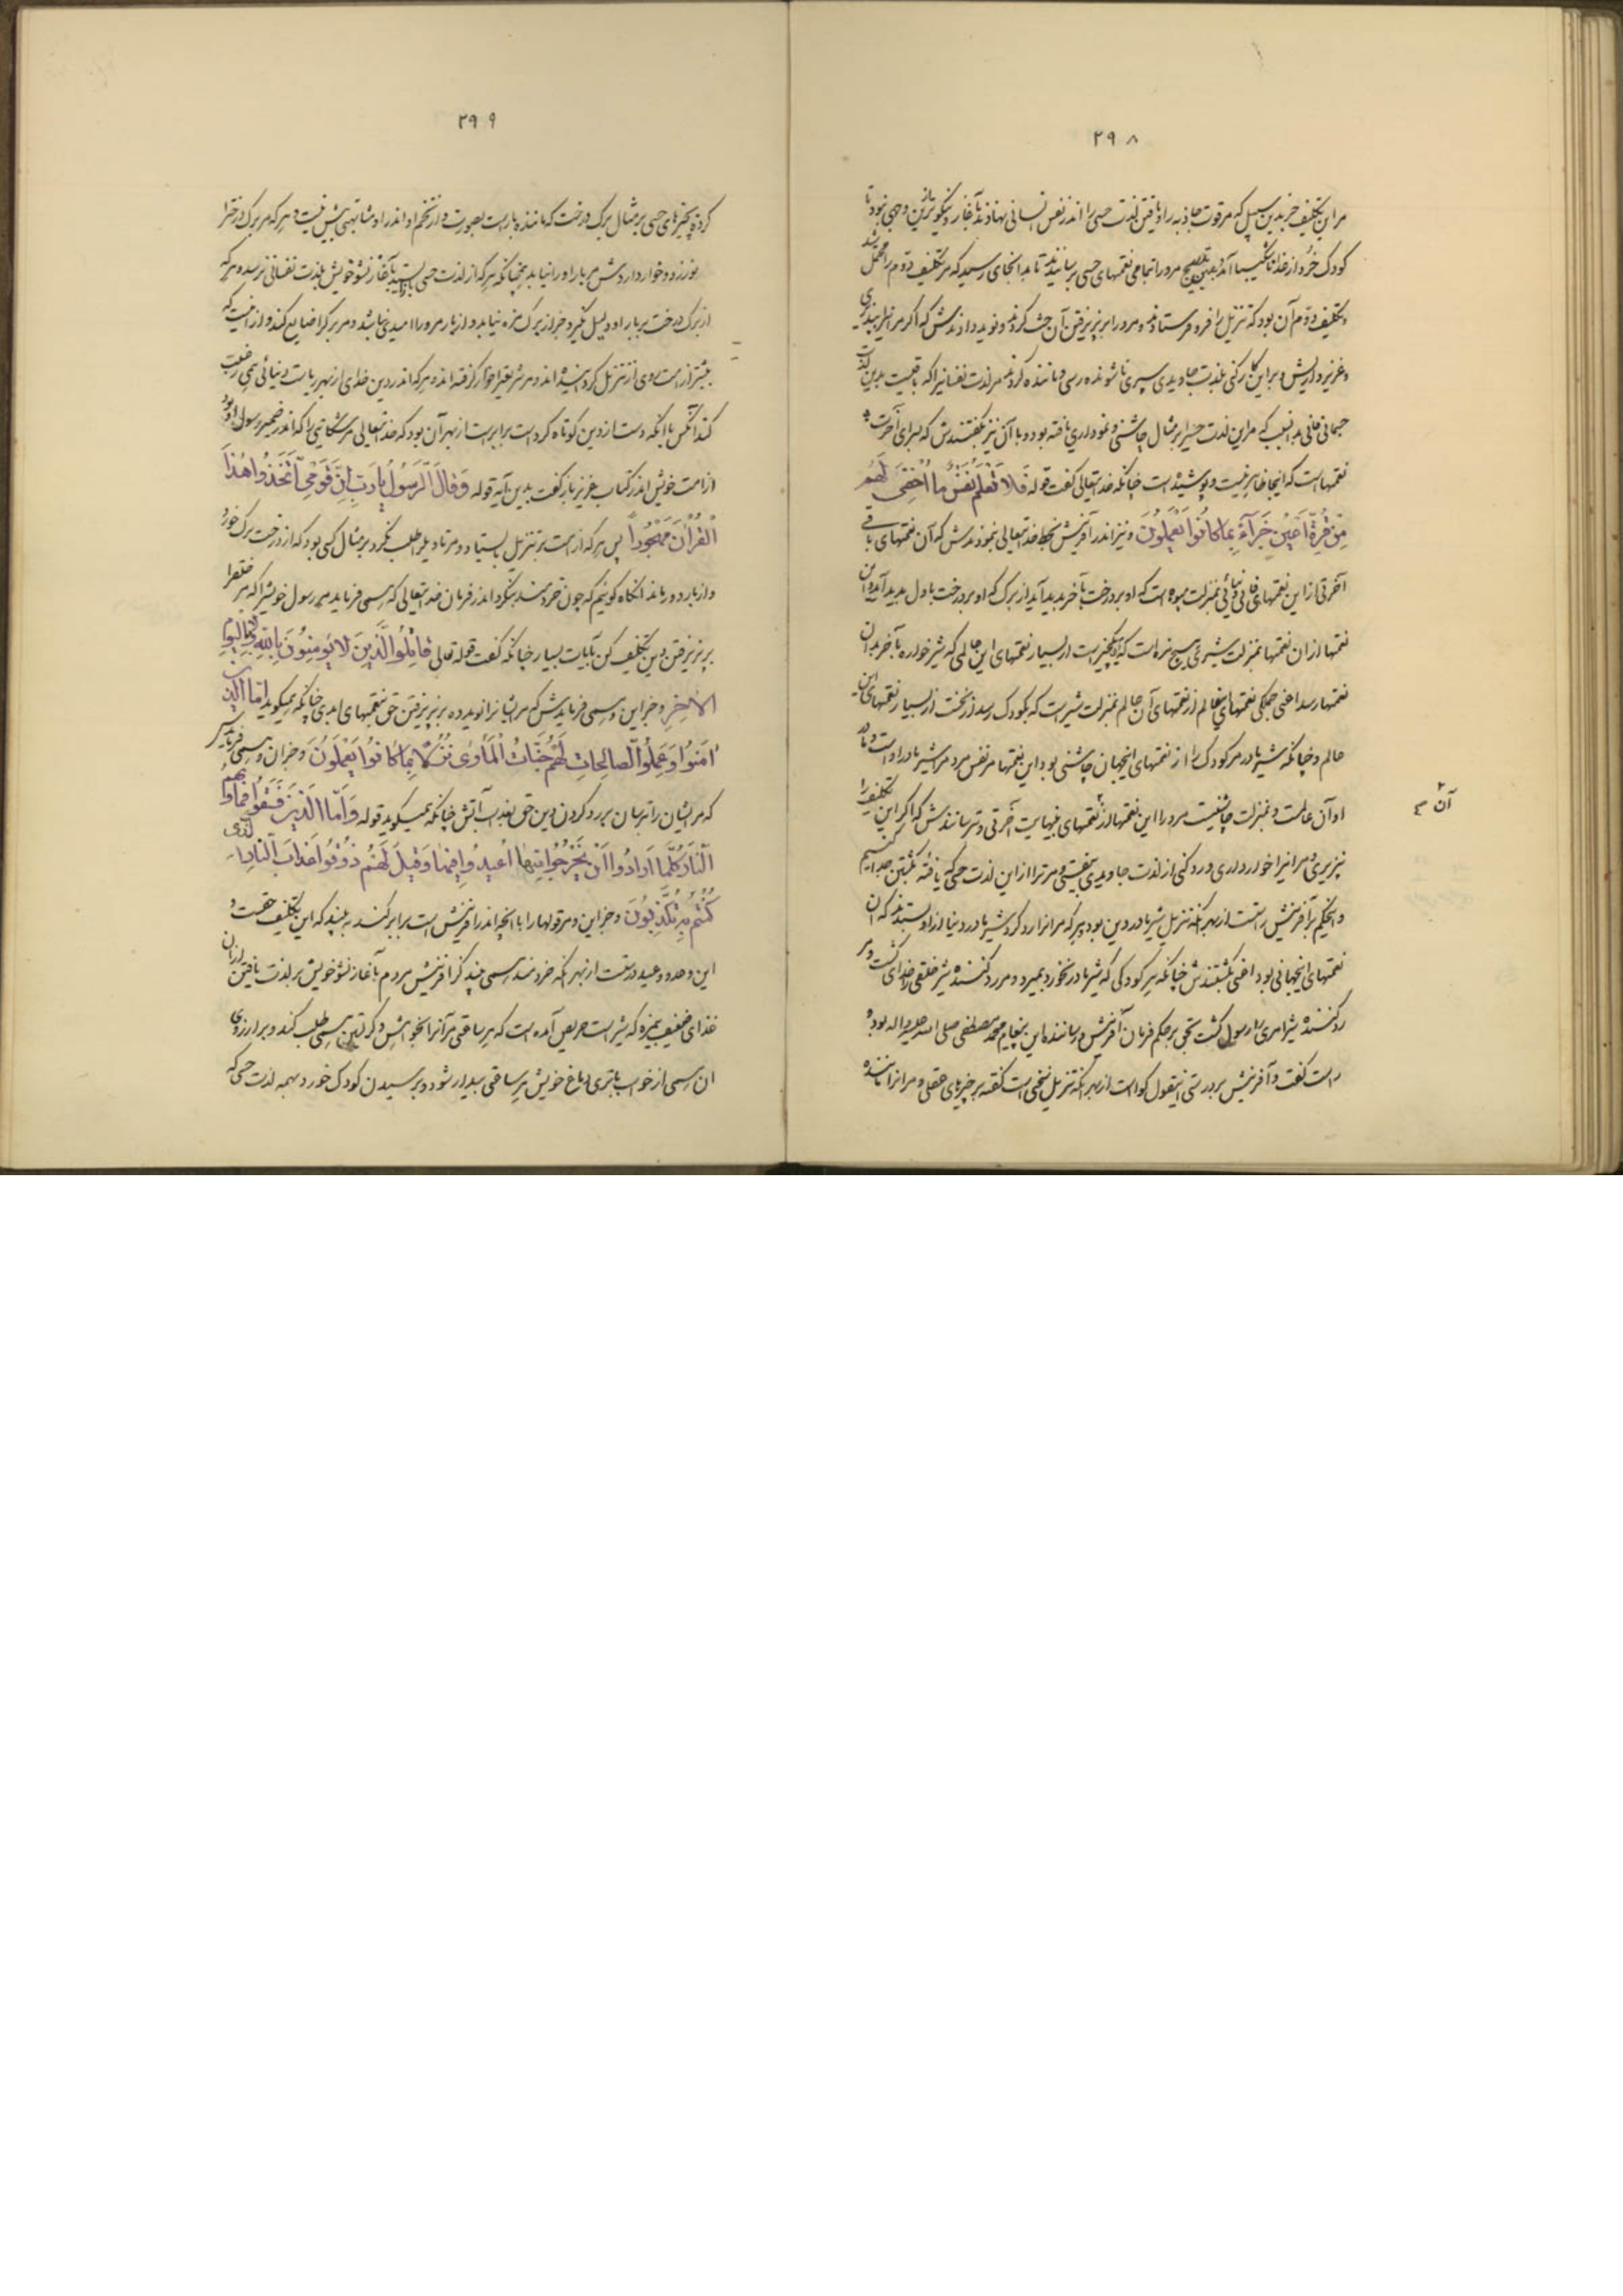 ۲۹۸
مر این تکلیف جز بدین سبیل که مر قوت جاذبه را و یافتن لذت حسی را اندر نفس انسانی نهادند بآغاز و نیکوترین وجهی نبود تا
کودک خرد از غذا ناشکیبا آمد و بدین مرو را بتمامی نعمتهای حسی برسانیدند تا بدانجای رسید که مر تکلیف دوم را محتمل شد
و تکلیف دوم آن بود که تنزیل را فرو فرستادند و مرو را بر پذیرفتن آن حث کردند و نوید دادندش که اگر مر اینرا بپذیری
و عزیز داریش و بر این کار کنی بلذت جاویدی سپری ناشونده رسی و ماننده کردند مر لذت نفسانیرا که باقیست بدین لذت
جسمانی فانی بدانسبب که مر این لذت حسیرا بر مثال چاشنی و نموداری یافته بود و با آن نیز بگفتندش که بسرای آخرت
نعمتهاست که اینجا ظاهر نیست و پوشیده است چنانکه خدایتعالی گفت قوله فَلا تَعْلَمُ نَفْسٌ ما أُخْفِيَ لَهُمْ
مِنْ قُرَّةِ أَعْيُنٍ جَزاءً بِما كانُوا يَعْمَلُونَ و نیز اندر آفرینش بخط خدایتعالی بنمودندش که آن نعمتهای باقی
آخرتی از این نعمتهای فانی دنیائی بمنزلت میوه است که او بر درخت بآخر پدید آید از برگ که او بر درخت باول پدید آید و این
نعمتها از آن نعمتها بمنزلت شیر بی هیچ مزه است که او یکچیز است از بسیار نعمتهای این عالمی که شیرخواره بآخر بدان
نعمتها رسد اعنی جملگی نعمتهای این عالم از نعمتهای آن عالم بمنزلت شیر است که بکودک رسد از نخست از بسیار نعمتهای این
عالم و چنانکه شیر مادر مر کودک را از نعمتهای اینجهان چاشنی بود این نعمتها مر نفس مردم را شیر مادر اوست و مادر
او آن عالمست و بمنزلت چاشنیست مرو را این نعمتها از نعمتهای بینهایت آخرتی و بترسانندش که اگر این تکلیف را
آن
نپذیری و مر اینرا خوار داری و رد کنی از لذت جاویدی بیفتی و مر ترا از این لذت حسی که یافتهٔ بکشتن جدا کنیم
و اینحکم بر آفرینش راست از بهر آنکه تنزیل شیر مادر دین بود و هر که مر آنرا رد کرد و شیر مادر دنیا از او بستدند که آن
نعمتهای اینجهانی بود اعنی بکشتندش چنانکه هر کودکی که شیر مادر نخورد بمیرد و مر رد کننده شیر خلقی را خدای کشت و مر
رد کننده شیر امری را رسول کشت بحق بر حکم فرمان آفرینش و رساننده این پیغام محمد مصطفی صلی الله علیه و اله بود و
راست گفت و آفرینش بر درستی اینقول گواست از بهر آنکه تنزیل سخنی است گفته بر چیزهای عقلی و مر آنرا ماننده
۲۹۹
کرده بچیزهای حسی بر مثال برگ درخت که ماننده بار است بصورت و از تخم او اندر او مشابهتی بیش نیست و هر که مر برگ درخترا
بورزد و خوار داردش مر بار او را نیابد همچنانکه هر که از لذت حسی باز ایستد بآغاز نشو خویش بلذت نفسانی نرسد و هر که
از برگ درخت بر بار او دلیل نگیرد جز از برگ مزه نیابد و از بار مرو را امیدی نباشد و مر برگ را ضایع کند و از اینست که
بیشتر از امت روی از تنزیل گردانیده اند و مر شریعترا خوار گرفته اند و هر که اندر دین خدای از بهر ریاست دنیائی همی رغبت
کند آنکس با آنکه دست از دین کوتاه کرد است برابر است از بهر آن بود که خدایتعالی مر شکایتی را که اندر ضمیر رسول او بود
از امت خویش اندر کتاب عزیز باز گفت بدین آیه قوله وَقالَ الرَّسُولُ يا رَبِّ إِنَّ قَوْمِي اتَّخَذُوا هذَا
الْقُرْآنَ مَهْجُوراً پس هر که از امت بر تنزیل بایستاد و مر تاویلرا طلب نکرد بر مثال کسی بود که از درخت برگ خورد
و از بار دور ماند آنگاه گوئیم که چون خردمند بنگرد اندر فرمان خدایتعالی که همی فرماید مر رسول خویشرا که مر خلق را
بر پذیرفتن دین تکلیف کن بآیات بسیار چنانکه گفت قوله تعالی قاتِلُوا الَّذِينَ لا يُؤْمِنُونَ بِاللهِ وَلا بِالْيَوْمِ
الْآخِرِ و جز این و همی فرمایدش که مر ایشانرا نوید ده بر پذیرفتن حق بنعمتهای ابدی چنانکه همیگوید أَمَّا الَّذِينَ
آمَنُوا وَعَمِلُوا الصَّالِحاتِ لَهُمْ جَنَّاتُ الْمَأْوى نُزُلاً بِما كانُوا يَعْمَلُونَ و جز آن و همی فرمایدش
که مر ایشان را بترسان بر رد کردن دین حق بعذاب آتش چنانکه همیگوید قوله وَأَمَّا الَّذِينَ فَسَقُوا فَمَأْواهُمُ
النَّارُ كُلَّما أَرادُوا أَنْ يَخْرُجُوا مِنْها أُعِيدُوا فِيها وَقِيلَ لَهُمْ ذُوقُوا عَذابَ النَّارِ الَّذِي
كُنْتُمْ بِهِ تُكَذِّبُونَ و جز این و مر قولها را با آنچه اندر آفرینش است برابر کند به بیند که این تکلیف حقست و
این وعد و وعید درست از بهر آنکه خردمند همی بیند کز آفرینش مردم بآغاز نشو خویش بر لذت یافتن از آن
غذای ضعیف بیمزه که شیر است حریص آمده است که هر ساعتی مر آنرا بخواهش و گریستن همی طلب کند و بر آرزوی
آن همی از خواب با تری دماغ خویش هر ساعتی بیدار شود و برسیدن کودک خورد بهمه لذت حسی که